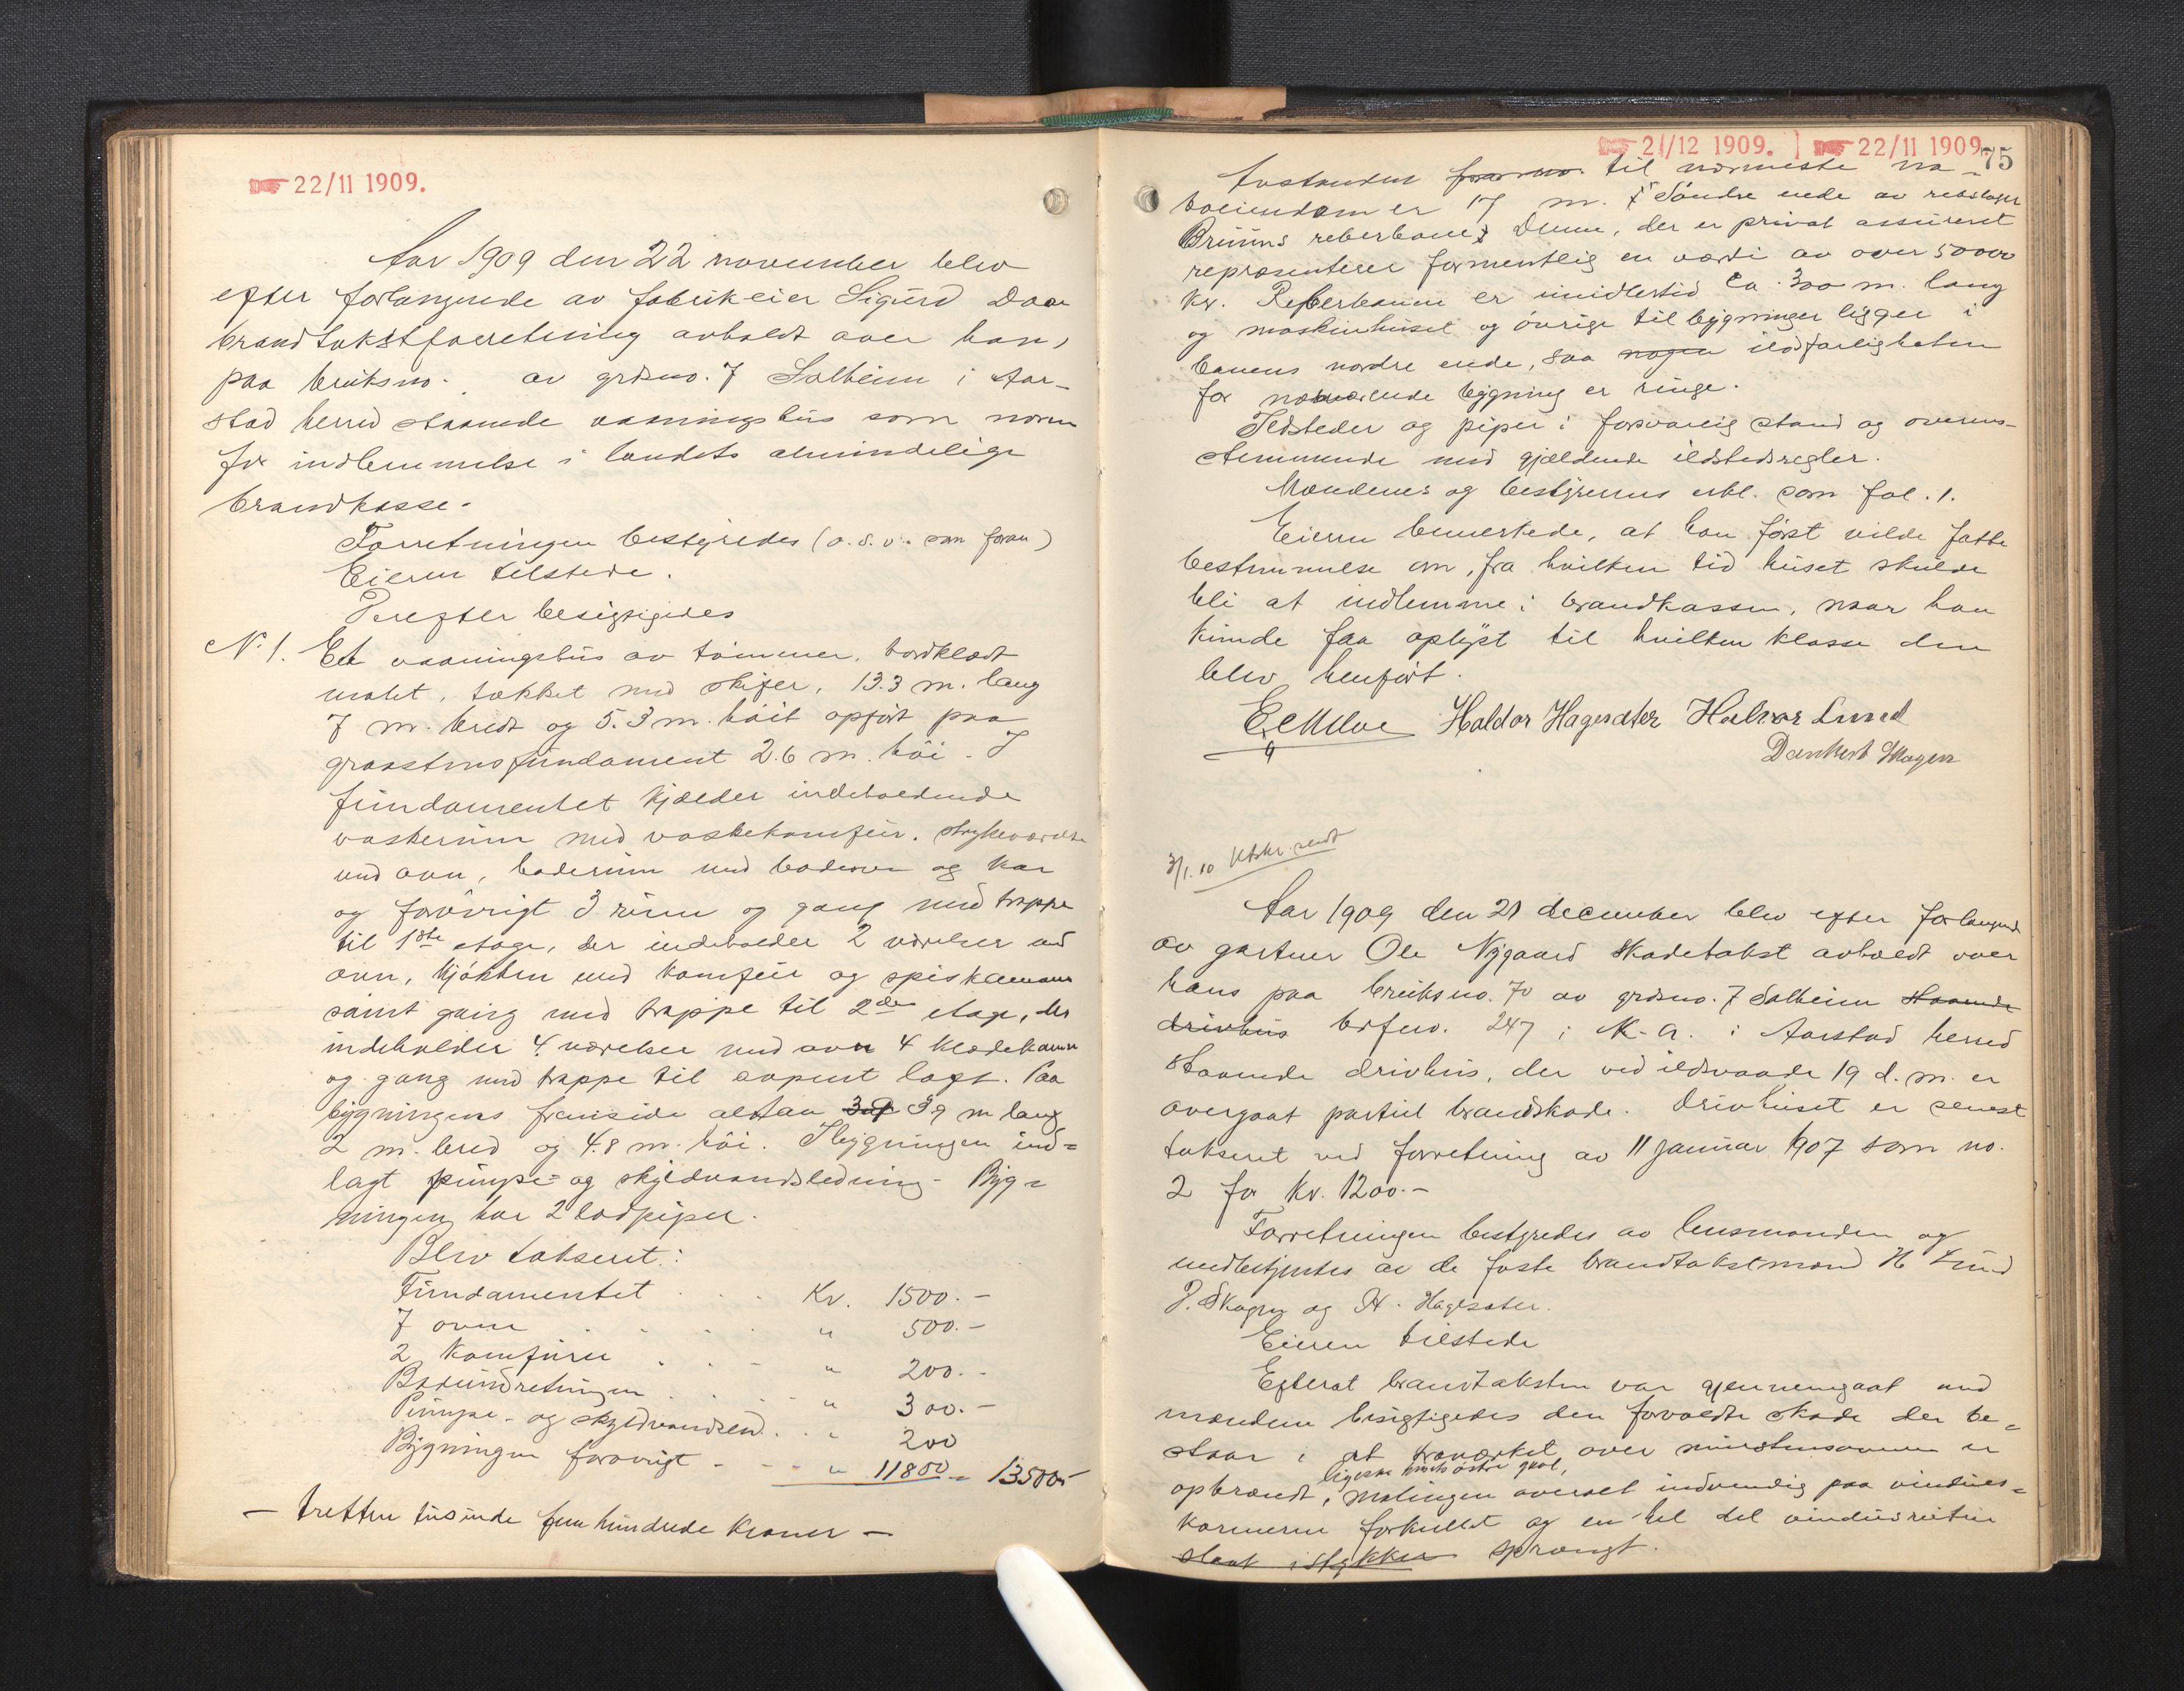 22/11 1909.
Aar 1909 den 22 november blev
efter forlangende av fabrikeier Sigurd Daae
brandtakstforretning avholdt over hans
paa bruksno. av grdsno. 7 Solheim i Aar-
stad herred staaende vaaningshus som norm
for indlemmelse i landets almindelige
brandkasse.
Forretningen bestyredes (o.s.v. som foran)
Eieren tilstede.
Derefter besigtigedes
N. 1. Et vaaningshus av tømmer, bordklædt
malet, tækket med skifer, 13.3 m. lang
7 m. bredt og 5.3 m. høit opført paa
graastensfundament 2.6 m. høi. I
fundamentet kjælder indeholdende
vaskerum med vaskekomfur, strykeværelse
med ovn, baderum med badeovn og kar
og forøvrigt 3 rum og gang med trappe
til 1ste etage, der indeholder 2 værelser med
ovn, kjøkken med komfur og spiskammer
samt gang med trappe til 2den etage, der
indeholder 4 værelser med ovn 4 klædekamre
og gang med trappe til aapent loft. Paa
bygningens fremside altan 3.9 3.9 m lang
2 m. bred og 4.8 m. høi. I bygningen ind=
lagt pumpe- og skyldvandsledning. Byg=
ningen har 2 lodpiper.
Blev takseret:
Fundamentet . . . Kr. 1500.-
7 ovne . . . . " 500.-
2 komfurer . . . " 200.-
Badeindretningen . . . " 300.-
Pumpe- og skyldvandsled. . . 200
Bygningen forøvrigt - - - " 11800 = 13500.-
- tretten tusinde fem hundrede kroner -
21/12 1909. 22/11 1909.
75
Avstanden til nærmeste na-
boeiendom er 17 m. Søndre ende av rebslager
Bruuns reberbane. Denne, der er privat assureret
repræsenterer formentlig en værdi av over 50000
Kr. Reberbanen er imidlertid ca. 300 m. lang
og maskinhuset og øvrige tilbygninger ligger i
banens nordre ende, saa nogen ildsfarligheten
for nærværende bygning er ringe.
Ildsteder og piper i forsvarlig stand og overens-
stemmende med gjældende ildstedsregler.
Mændenes og bestyrerens erkl. som fol. 1.
Eieren bemerkede, at han først vilde fatte
bestemmelse om, fra hvilken tid huset skulde
bli at indlemme i brandkassen, naar han
kunde faa oplyst til hvilken klasse den
blev henført.
Haldor Hagesæter Halvor Lund
Dankert Skagen
3/1.10 Utskr. sendt
Aar 1909 den 21 december blev efter forlangende
av gartner Ole Nygaard skadetakst avholdt over
hans paa bruksno. 70 av grdsno. 7 Solheim staaende
drivhus brfno. 247 i M.A. i Aarstad herred
staaende drivhus, der ved ildsvaade 19 d.m. er
overgaat partiel brandskade. Drivhuset er senest
takseret ved forretning av 11 januar 1907 som no.
2 for Kr. 1200.-
Forretningen bestyredes av lensmanden og
medbetjentes av de faste brandtakstmænd H Lund
D. Skagen og H. Hagesæter.
Eieren tilstede
Efterat brandtaksten var gjennemgaat med
mændene besigtigedes den forvoldte skade der be=
staar i at træverket over murstensovnen er
ligesaa husets østre gavl,
opbrændt, malingen overalt indvendig paa vindues=
karmerne forkullet og en hel del vindusruter
slaat istykker sprængt.